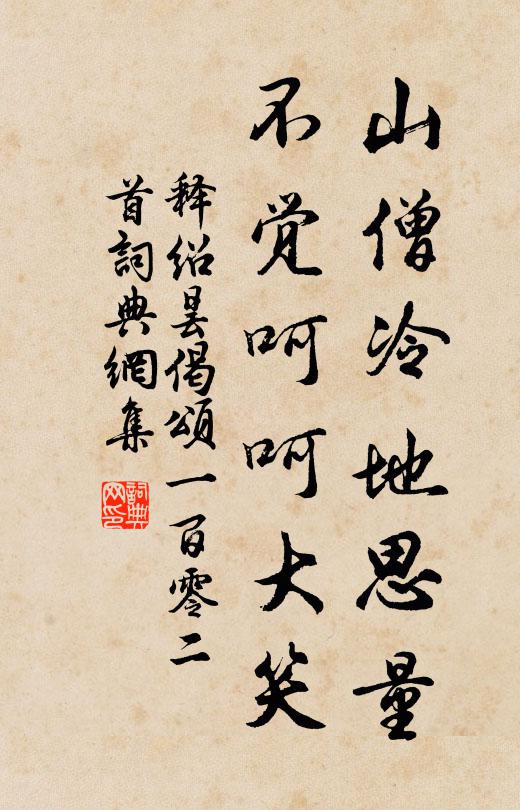 山僧冷地思量
不觉呵呵大笑
释绍昙偈頌一百零二
首詞典網集
詞典
网印